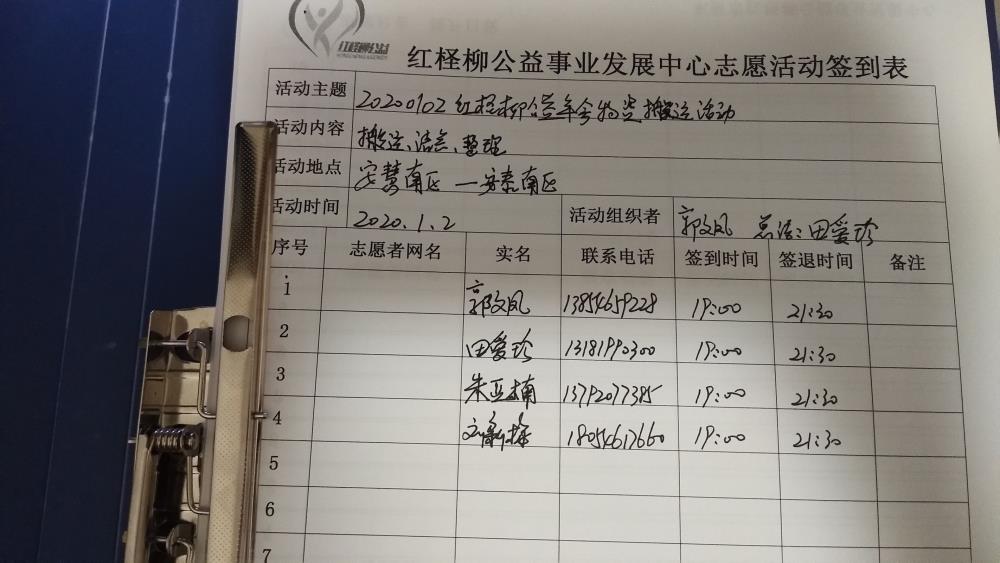 红柽柳公益
红柽柳公益事业发展中心志愿活动签到表
活动主题 20200102红柽柳公益年会物资搬运活动
活动内容 搬运、清点、整理
活动地点 安慧南区—安泰南区
活动时间 2020.1.2 活动组织者 郭文凤 总结:田爱珍
序号 志愿者网名 实名 联系电话 签到时间 签退时间 备注
1 郭文凤 13854659228 19:00 21:30
2 田爱珍 13181990300 19:00 21:30
3 朱亚楠 13792077385 19:00 21:30
4 18054617660 19:00 21:30
5
6
7